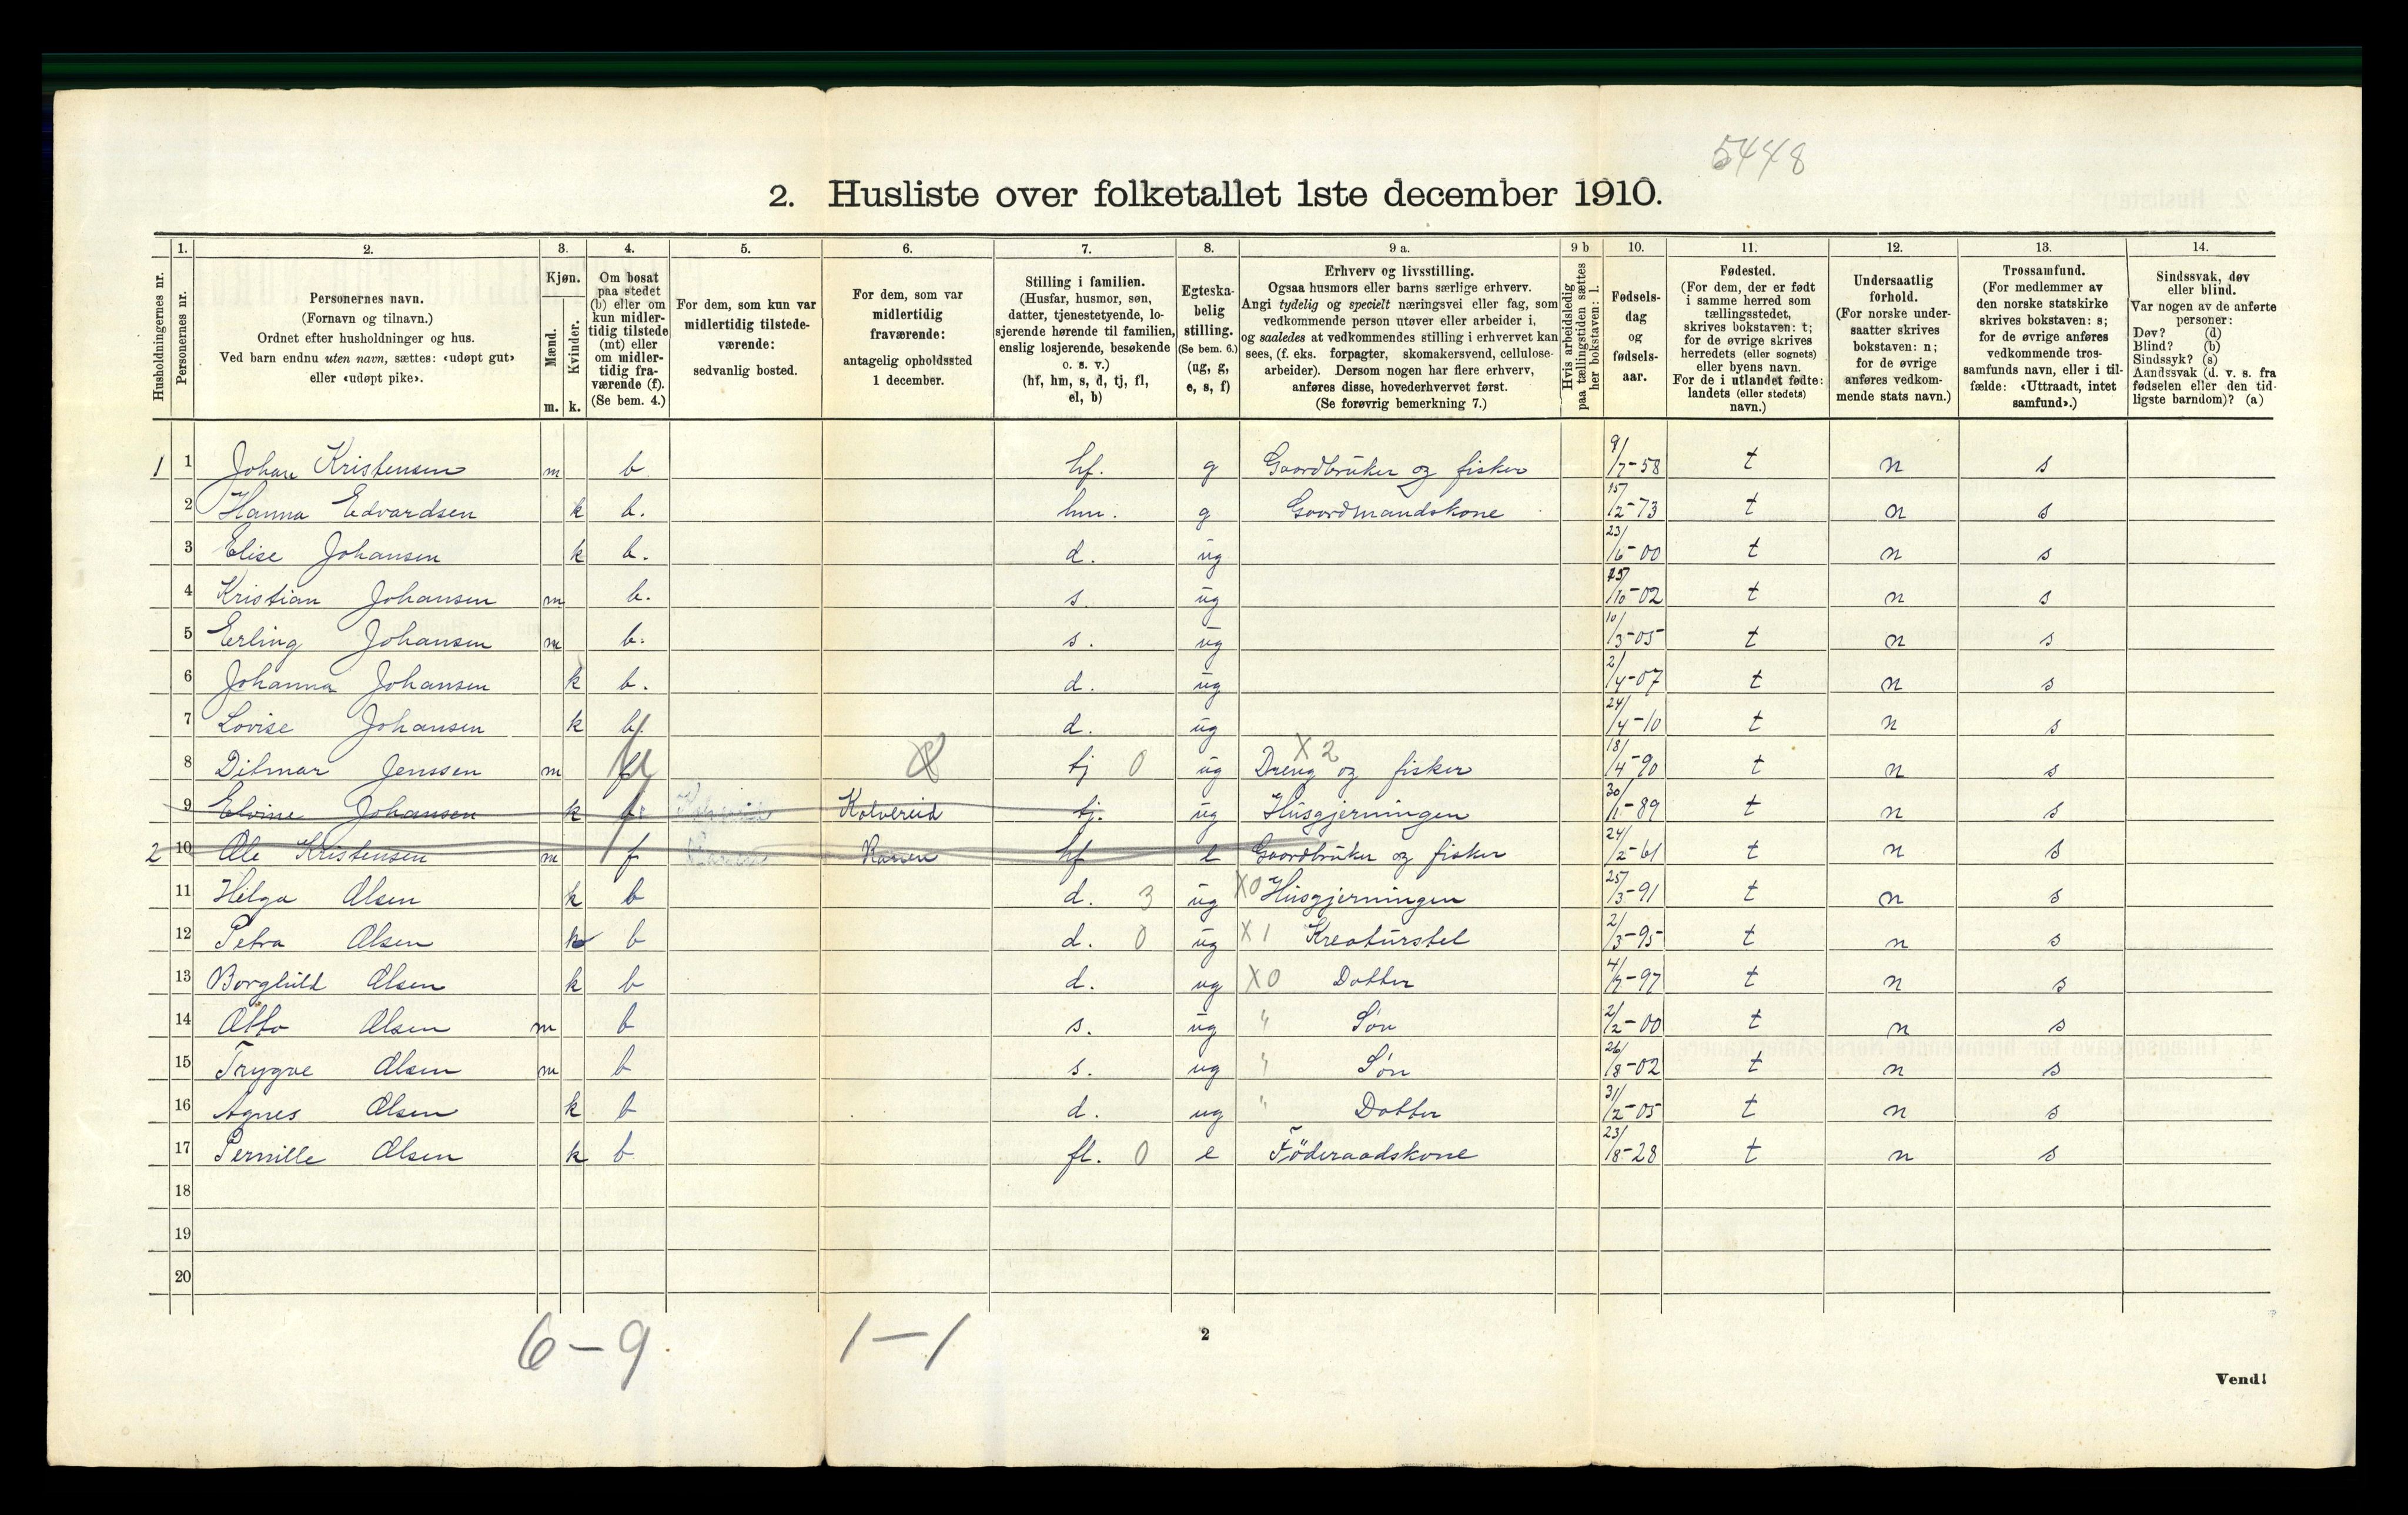 5448
2. Husliste over folketallet 1ste december 1910.
Husholdningernes nr.
1.
Personernes nr.
2.
Personernes navn.
(Fornavn og tilnavn.)
Ordnet efter husholdninger og hus.
Ved barn endnu uten navn, sættes: «udøpt gut»
eller «udøpt pike».
3.
Kjøn.
Mænd.
Kvinder.
m. k.
4.
Om bosat
paa stedet
(b) eller om
kun midler-
tidig tilstede
(mt) eller
om midler-
tidig fra-
værende (f).
(Se bem. 4.)
5.
For dem, som kun var
midlertidig tilstede-
værende:
sedvanlig bosted.
6.
For dem, som var
midlertidig
fraværende:
antagelig opholdssted
1 december.
7.
Stilling i familien.
(Husfar, husmor, søn,
datter, tjenestetyende, lo-
sjerende hørende til familien,
enslig losjerende, besøkende
o. s. v.)
(hf, hm, s, d, tj, fl,
el, b)
8.
Egteska-
belig
stilling.
(Se bem. 6.)
(ug, g,
e, s, f)
9 a.
Erhverv og livsstilling.
Ogsaa husmors eller barns særlige erhverv.
Angi tydelig og specielt næringsvei eller fag, som
vedkommende person utøver eller arbeider i,
og saaledes at vedkommendes stilling i erhvervet kan
sees, (f. eks. forpagter, skomakersvend, cellulose-
arbeider). Dersom nogen har flere erhverv,
anføres disse, hovederhvervet først.
(Se forøvrig bemerkning 7.)
9 b
Hvis arbeidsledig
paa tællingstiden sættes
her bokstaven: l.
10.
Fødsels-
dag
og
fødsels-
aar.
11.
Fødested.
(For dem, der er født
i samme herred som
tællingsstedet,
skrives bokstaven: t;
for de øvrige skrives
herredets (eller sognets)
eller byens navn.
For de i utlandet fødte:
landets (eller stedets)
navn.)
12.
Undersaatlig
forhold.
(For norske under-
saatter skrives
bokstaven: n;
for de øvrige
anføres vedkom-
mende stats navn.)
13.
Trossamfund.
(For medlemmer av
den norske statskirke
skrives bokstaven: s;
for de øvrige anføres
vedkommende tros-
samfunds navn, eller i til-
fælde: «Uttraadt, intet
samfund».)
14.
Sindssvak, døv
eller blind.
Var nogen av de anførte
personer:
Døv? (d)
Blind? (b)
Sindssyk? (s)
Aandssvak (d. v. s. fra
fødselen eller den tid-
ligste barndom)? (a)
1 1 Johan Kristensen m b hf. g Gaardbruker og fisker 9/7-58 t n s
2 Hanna Edvardsen k b. hm. g Gaardmandskone 15/2-73 t n s
3 Elise Johansen k b. d. ug 23/6-00 t n s
4 Kristian Johansen m b. s. ug 25/10-02 t n s
5 Erling Johansen m b. s. ug 10/3-05 t n s
6 Johanna Johansen k b. d. ug 2/4-07 t n s
7 Lovise Johansen k b. d. ug 24/4-10 t n s
8 Ditmar Jenssen m tj 0 ug X 2 Dreng og fisker 18/4-90 t n s
9 Elvine Johansen k f Kolvereid tj. ug Husgjerningen 30/1-89 t n s
2 10 Ole Kristensen m f Ranen hf e Gaardbruker og fisker 24/2-61 t n s
11 Helga Olsen k b d. 3 ug X0 Husgjerningen 25/3-91 t n s
12 Petra Olsen k b d. 0 ug X 1 Kreaturstel 2/3-95 t n s
13 Borghild Olsen k b d. ug X0 Datter 4/7-97 t n s
14 Otto Olsen m b s. ug " Søn 2/2-00 t n s
15 Trygve Olsen m b s. ug " Søn 26/8-02 t n s
16 Agnes Olsen k b d. ug " Datter 31/2-05 t n s
17 Pernille Olsen k b fl. 0 e Föderaadskone 23/8-28 t n s
18
19
20
6-9. 1-1
2
Vend!